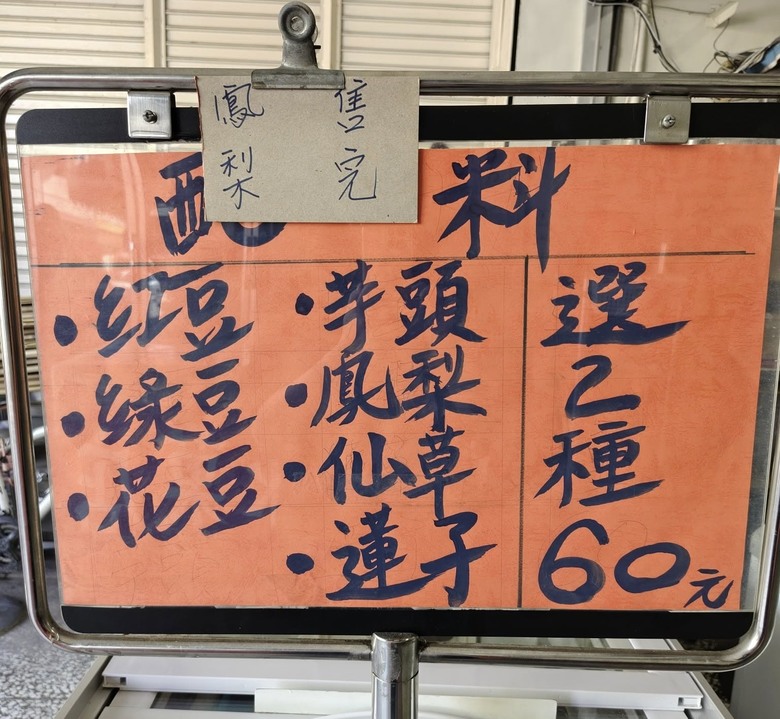 鳳梨
售完
配料
・紅豆
・綠豆
・花豆
・芋頭
・鳳梨
・仙草
・蓮子
選2種60元